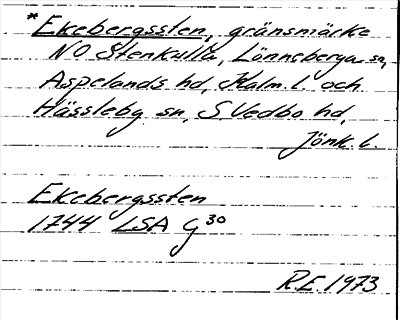 * Ekebergssten, gränsmärke
NO Stenkulla, Lönneberga sn,
Aspelands hd, Kalm. l. och
Hässleby sn, S. Vedbo hd,
Jönk. l.
Ekebergssten
1744 LSA G 30
R.E. 1973